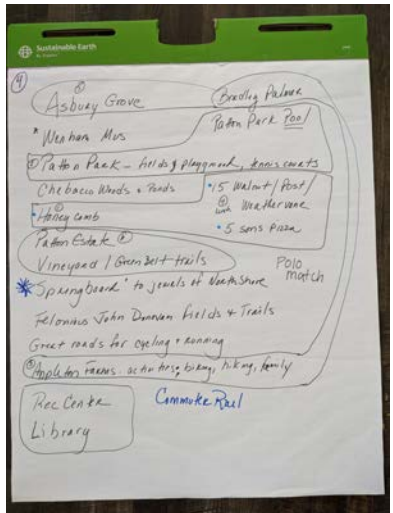 Sustainable Earth
4
Asbury Grove
Bradley Palmer
* Wenham Mus
Patton Park Pool
Patton Park - fields & playground, tennis courts
Chebacco Woods + Ponds
• 15 Walnut / Post /
Weathervane
• Honeycomb
• 5 sons Pizza
Patton Estate
Vineyard / Green Belt trails
Polo match
* "Springboard" to jewels of North Shore
Felonious John Donovan fields & Trails
Great roads for cycling + running
Appleton Farms - activities; biking, hiking, family
Rec Center
Commuter Rail
Library